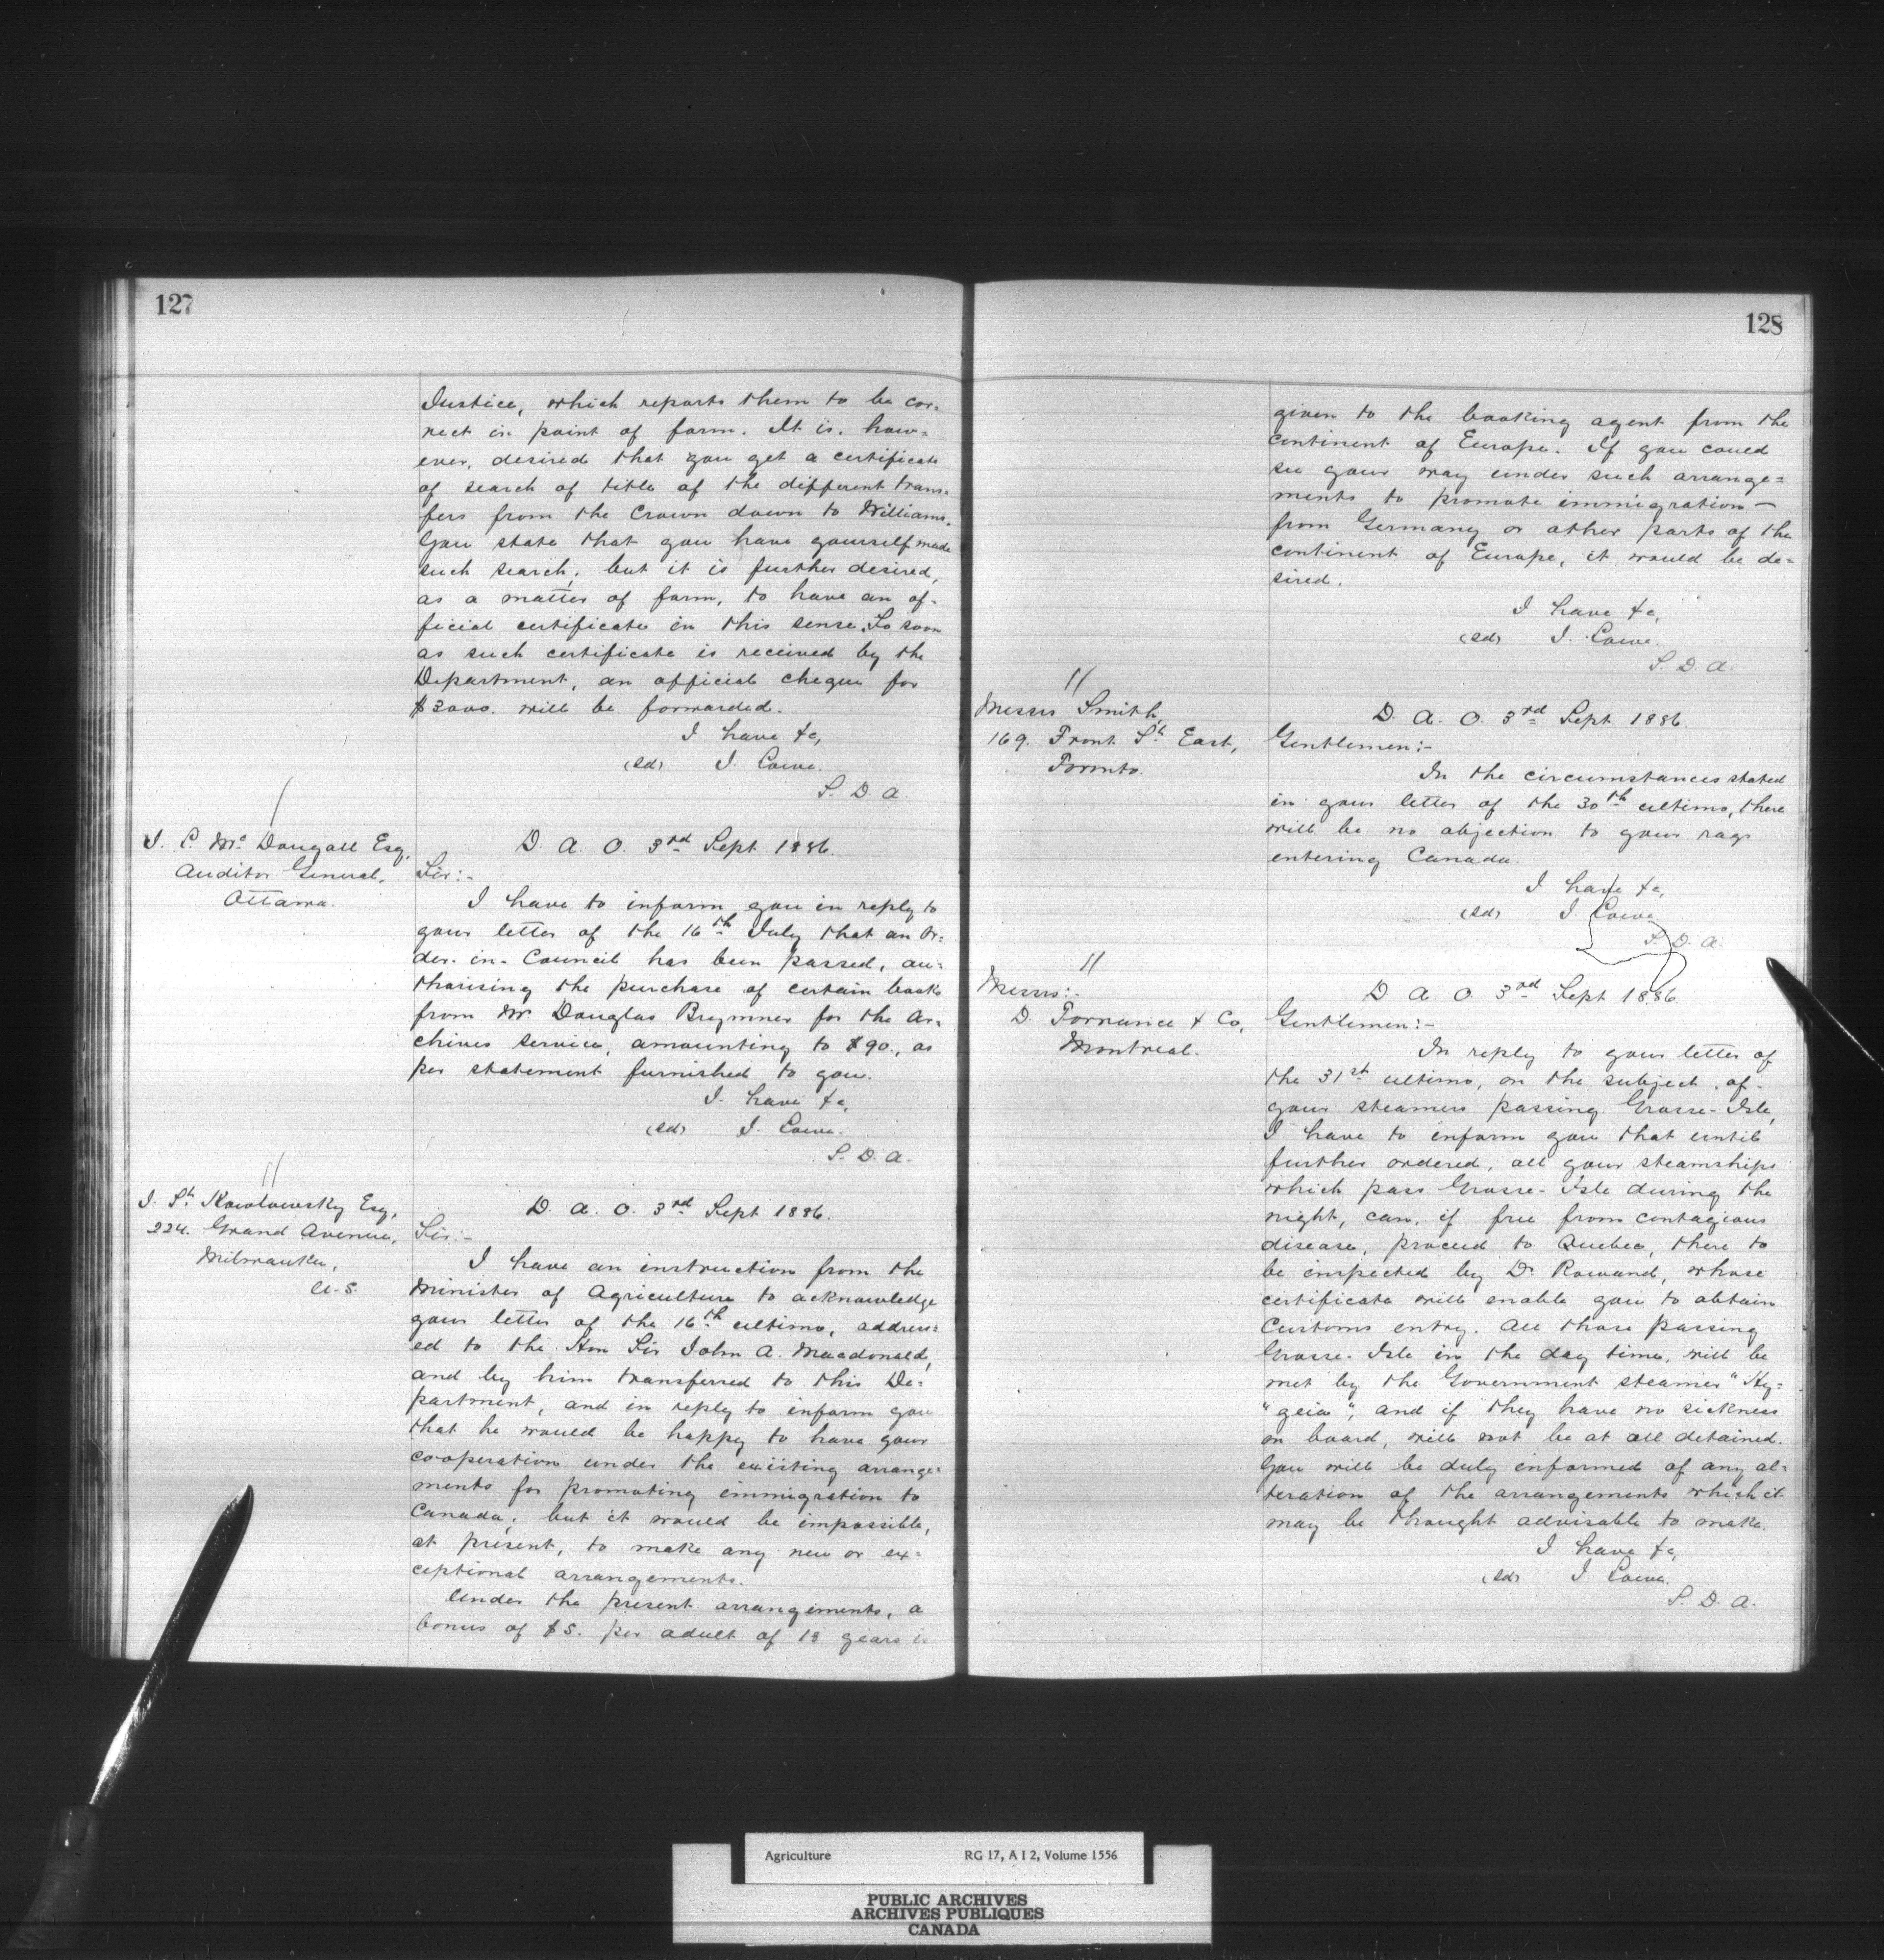 127
Justice, which reports them to be cor=
rect in point of form. It is, how=
ever, desired that you get a certificate
of search of title of the different trans=
fers from the Crown down to Williams.
You state that you have yourself made
such search, but it is further desired,
as a matter of form, to have an of=
ficial certificate in this sense. So soon
as such certificate is received by the
Department, an official cheque for
$3000. will be forwarded.
I have &c,
(sd) J. Lowe.
S. D. A.
J. L. Mc Dougall Esq,
Auditor General,
Ottawa.
D. A. O. 3rd Sept 1886.
Sir:-
I have to inform you in reply to
your letter of the 16th July that an Or=
der-in-Council has been passed, au=
thorising the purchase of certain books
from Mr Douglas Brymner for the Ar=
chives service, amounting to $90., as
per statement furnished to you.
I have &c,
(sd) J. Lowe.
S. D. A.
J. St. Kowlowsky Esq,
224. Grand Avenue,
Milwaukee,
U.S.
D. A. O. 3rd Sept 1886.
Sir:-
I have an instruction from the
Minister of Agriculture to acknowledge
your letter of the 16th ultimo, address=
ed to the Hon Sir John A. Macdonald,
and by him transferred to this De=
partment, and in reply to inform you
that he would be happy to have your
cooperation under the existing arrange=
ments for promoting immigration to
Canada; but it would be impossible,
at present, to make any new or ex=
ceptional arrangements.
Under the present arrangements, a
bonus of $5. per adult of 18 years is
128
given to the booking agent from the
continent of Europe. If you could
see your way under such arrange=
ments to promote immigration—
from Germany or other parts of the
continent of Europe, it would be de=
sired.
I have &c,
(sd) J. Lowe.
S. D. A.
11
Messrs Smith,
169. Front St. East,
Toronto.
D. A. O. 3rd Sept 1886.
Gentlemen:-
In the circumstances stated
in your letter of the 30th ultimo, there
will be no objection to your rags
entering Canada.
I have &c,
(sd) J. Lowe
S. D. A.
11
Messrs:-
D. Torrance & Co,
Montreal.
D. A. O. 3rd Sept 1886.
Gentlemen:-
In reply to your letter of
the 31st ultimo, on the subject of
your steamers passing Grosse-Isle,
I have to inform you that until
further ordered, all your steamships
which pass Grosse-Isle during the
night, can, if free from contagious
disease, proceed to Quebec, there to
be inspected by Dr Rowand, whose
certificate will enable you to obtain
Customs entry. All those passing
Grosse-Isle in the day time, will be
met by the Government steamer "Hy=
"geia", and if they have no sickness
on board, will not be at all detained.
You will be duly informed of any al=
teration of the arrangements which it
may be thought advisable to make.
I have &c,
(sd) J. Lowe.
S. D. A.
Agriculture RG 17, A I 2, Volume 1556
PUBLIC ARCHIVES
ARCHIVES PUBLIQUES
CANADA